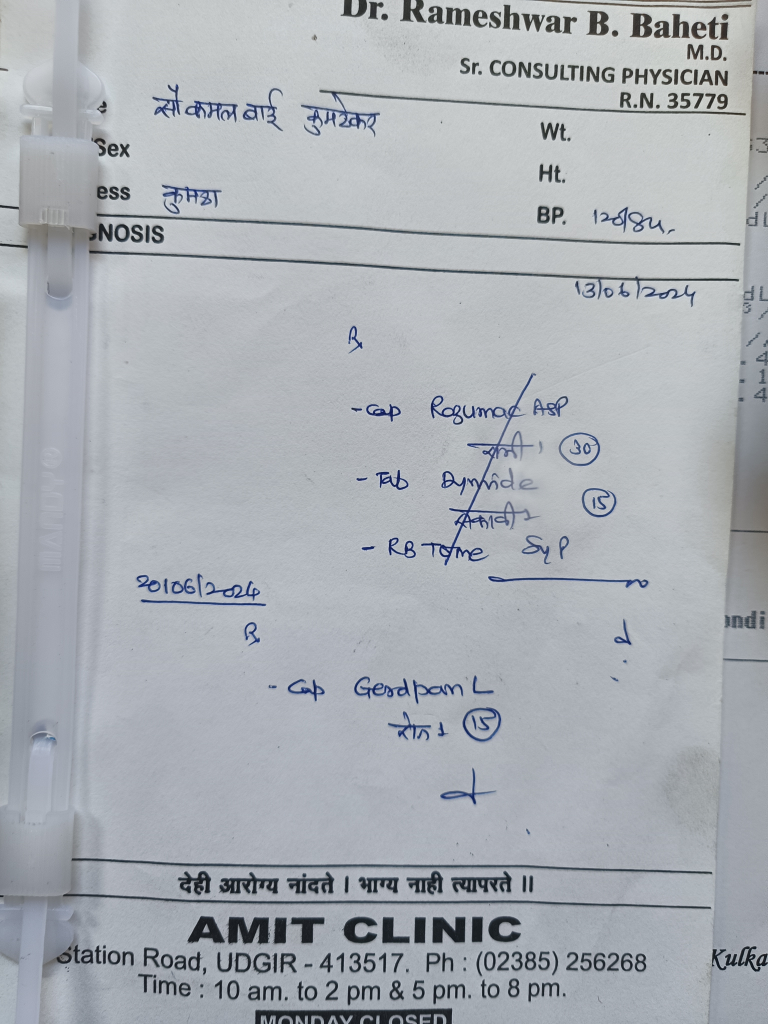 Dr. Rameshwar B. Baheti
M.D.
Sr. CONSULTING PHYSICIAN
R.N. 35779
e सौ कमल बाई कुमठेकर
Wt.
Sex
Ht.
ess कुमठा
BP. 120/84
GNOSIS
13/06/2024
Rx
- Cap Rozumac ASP
रात्री 1 30
- Tab
सकाळी 1 15
- RB Tone Syp
20/06/2024
Rx
- Cap Gerdpan L
रोज 1 15
देही आरोग्य नांदते । भाग्य नाही त्यापरते ॥
AMIT CLINIC
Station Road, UDGIR - 413517. Ph : (02385) 256268
Kulka
Time : 10 am. to 2 pm & 5 pm. to 8 pm.
MONDAY CLOSED